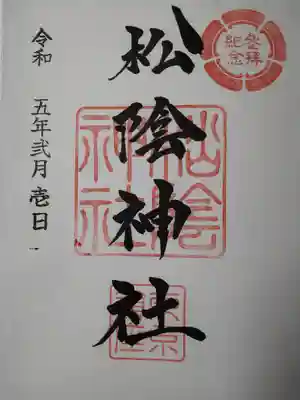 参拝
記念
松陰神社
松陰
神社
令和 五年弐月壱日